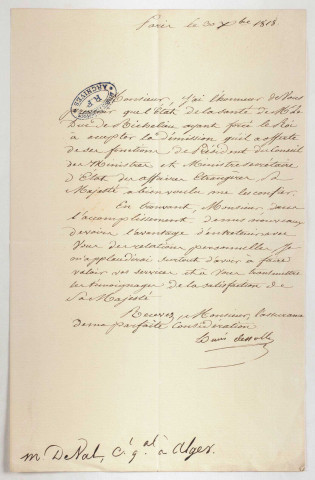 Paris le 30 Xbre 1818
Monsieur, j'ai l'honneur de Vous
que l'État de la santé de M. le
Duc de Richelieu ayant forcé le Roi
à accepter la démission qu'il a offerte
de ses fonctions de Président du Conseil
des Ministres et Ministre secrétaire
d'État des affaires Étrangères, Sa
Majesté a bien voulu me les confier.
En trouvant, Monsieur, dans
l'accomplissement de mes nouveaux
devoirs l'avantage d'entretenir avec
Vous des relations personnelles, Je
m'applaudirai surtout d'avoir à faire
valoir vos services et à Vous transmettre
les témoignages de la satisfaction de
Sa Majesté
Recevez, Monsieur, l'assurance
de ma parfaite considération
ARCHIVES
R F
M Deval, C. Gal à Alger.